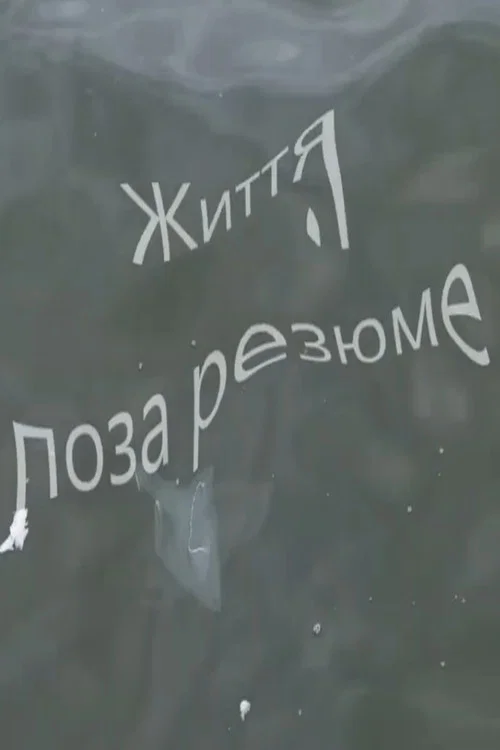 Життя
поза резюме